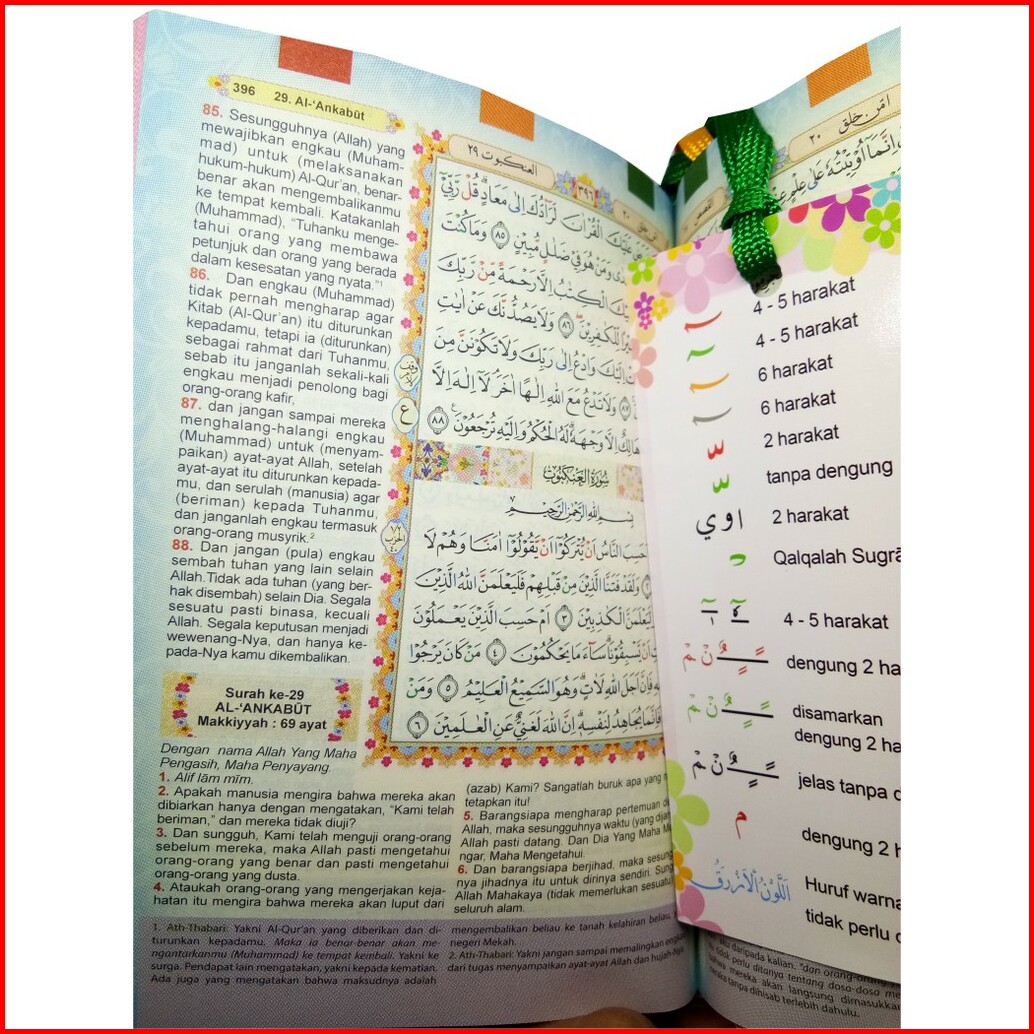 396 29. Al-‘Ankabūt
85. Sesungguhnya (Allah) yang
mewajibkan engkau (Muham-
mad) untuk (melaksanakan
hukum-hukum) Al-Qur’an, benar-
benar akan mengembalikanmu
ke tempat kembali. Katakanlah
(Muhammad), “Tuhanku menge-
tahui orang yang membawa
petunjuk dan orang yang berada
dalam kesesatan yang nyata.”¹
86. Dan engkau (Muhammad)
tidak pernah mengharap agar
Kitab (Al-Qur’an) itu diturunkan
kepadamu, tetapi ia (diturunkan)
sebagai rahmat dari Tuhanmu,
sebab itu janganlah sekali-kali
engkau menjadi penolong bagi
orang-orang kafir,
87. dan jangan sampai mereka
menghalang-halangi engkau
(Muhammad) untuk (menyam-
paikan) ayat-ayat Allah, setelah
ayat-ayat itu diturunkan kepada-
mu, dan serulah (manusia) agar
(beriman) kepada Tuhanmu,
dan janganlah engkau termasuk
orang-orang musyrik.²
88. Dan jangan (pula) engkau
sembah tuhan yang lain selain
Allah.Tidak ada tuhan (yang ber-
hak disembah) selain Dia. Segala
sesuatu pasti binasa, kecuali
Allah. Segala keputusan menjadi
wewenang-Nya, dan hanya ke-
pada-Nya kamu dikembalikan.
Surah ke-29
AL-‘ANKABŪT
Makkiyyah : 69 ayat
Dengan nama Allah Yang Maha
Pengasih, Maha Penyayang.
1. Alif lām mīm.
2. Apakah manusia mengira bahwa mereka akan
dibiarkan hanya dengan mengatakan, “Kami telah
beriman,” dan mereka tidak diuji?
3. Dan sungguh, Kami telah menguji orang-orang
sebelum mereka, maka Allah pasti mengetahui
orang-orang yang benar dan pasti mengetahui
orang-orang yang dusta.
4. Ataukah orang-orang yang mengerjakan keja-
hatan itu mengira bahwa mereka akan luput dari
(azab) Kami? Sangatlah buruk apa yang
tetapkan itu!
5. Barangsiapa mengharap pertemuan
Allah, maka sesungguhnya waktu (yang
Allah pasti datang. Dan Dia Yang Maha
ngar, Maha Mengetahui.
6. Dan barangsiapa berjihad, maka
nya jihadnya itu untuk dirinya sendiri.
Allah Mahakaya (tidak memerlukan sesuatu)
seluruh alam.
1. Ath-Thabari: Yakni Al-Qur’an yang diberikan dan di-
turunkan kepadamu. Maka ia benar-benar akan me-
ngantarkanmu (Muhammad) ke tempat kembali. Yakni ke
surga. Pendapat lain mengatakan, yakni kepada kematian.
Ada juga yang mengatakan bahwa maksudnya adalah
mengembalikan beliau ke tanah kelahiran beliau,
negeri Mekah.
2. Ath-Thabari: Yakni jangan sampai memalingkan
dari tugas menyampaikan ayat-ayat Allah dan hujah-Nya
العنكبوت ٢٩
٣٩٦
امّن خلق ٢٠
عَلَيْكَ الْقُرْاٰنَ لَرَاۤدُّكَ اِلٰى مَعَادٍ ۗقُلْ رَّبِّيْٓ
وَمَنْ هُوَ فِيْ ضَلٰلٍ مُّبِيْنٍ ٨٥ وَمَا كُنْتَ
الْكِتٰبُ اِلَّا رَحْمَةً مِّنْ رَّبِّكَ
لِّلْكٰفِرِيْنَ ۖ ٨٦ وَلَا يَصُدُّنَّكَ عَنْ اٰيٰتِ
اِلَيْكَ وَادْعُ اِلٰى رَبِّكَ وَلَا تَكُوْنَنَّ مِنَ
٨٧ وَلَا تَدْعُ مَعَ اللّٰهِ اِلٰهًا اٰخَرَۘ لَآ اِلٰهَ اِلَّا
هَالِكٌ اِلَّا وَجْهَهٗ ۗ لَهُ الْحُكْمُ وَاِلَيْهِ تُرْجَعُوْنَ ٨٨
سُوْرَةُ الْعَنْكَبُوْتِ
بِسْمِ اللّٰهِ الرَّحْمٰنِ الرَّحِيْمِ
اَحَسِبَ النَّاسُ اَنْ يُّتْرَكُوْٓا اَنْ يَّقُوْلُوْٓا اٰمَنَّا وَهُمْ لَا
وَلَقَدْ فَتَنَّا الَّذِيْنَ مِنْ قَبْلِهِمْ فَلَيَعْلَمَنَّ اللّٰهُ الَّذِيْنَ
وَلَيَعْلَمَنَّ الْكٰذِبِيْنَ ٣ اَمْ حَسِبَ الَّذِيْنَ يَعْمَلُوْنَ
اَنْ يَّسْبِقُوْنَا ۗسَاۤءَ مَا يَحْكُمُوْنَ ٤ مَنْ كَانَ يَرْجُوْا
فَاِنَّ اَجَلَ اللّٰهِ لَاٰتٍ ۗوَهُوَ السَّمِيْعُ الْعَلِيْمُ ٥ وَمَنْ
فَاِنَّمَا يُجَاهِدُ لِنَفْسِهٖ ۗاِنَّ اللّٰهَ لَغَنِيٌّ عَنِ الْعٰلَمِيْنَ ٦
امّن خلق ٢٠
اِنَّمَآ اُوْتِيْتُهٗ عَلٰى عِلْمٍ
4 - 5 harakat
4 - 5 harakat
6 harakat
6 harakat
2 harakat
tanpa dengung
ا و ي 2 harakat
Qalqalah
4 - 5 harakat
dengung 2
disamarkan
dengung 2
jelas tanpa
م dengung 2
اَللَّوْنُ الْاَزْرَقُ Huruf
tidak perlu
aku daripada kalian.
tidak perlu ditanya tentang dosa-dosa
bahwa mereka akan langsung dimasukkan
neraka tanpa dihisab terlebih dahulu.